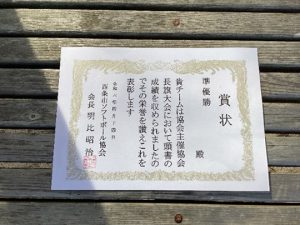 賞状
準優勝
殿
貴チームは協会主催協会
長旗大会において頭書の
成績を収められましたの
でその栄誉を讃えこれを
表彰します
令和六年四月十四日
西条市ソフトボール協会
会長 明比昭治